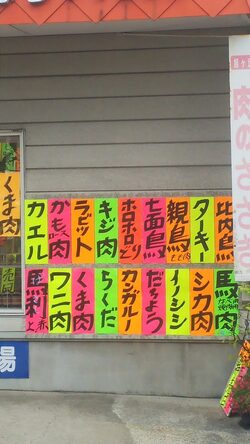 比内鳥
ターキー
親鳥
七面鳥
ホロホロどり
キジ肉
ラビット
かも肉
カエル
馬肉
シカ肉
イノシシ
だちょう
カンガルー
らくだ
くま肉
ワニ肉
馬刺
上 赤
くま肉
場